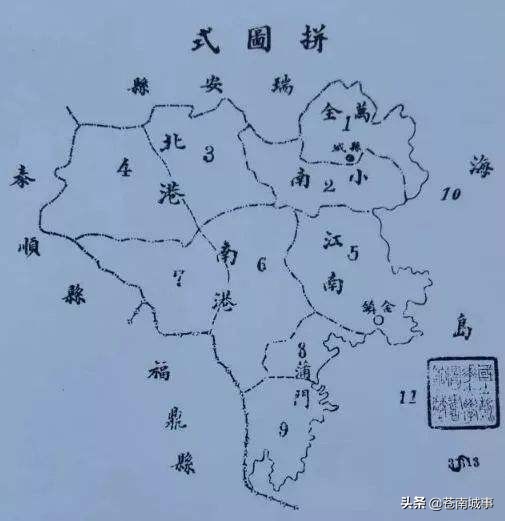 拼圖式
瑞安縣
萬全
1
縣城
小南
2
北港
3
4
泰順縣
海島
10
江南
5
金鎮
南港
6
7
8
蒲門
9
福鼎縣
11
头条 @苍南城事